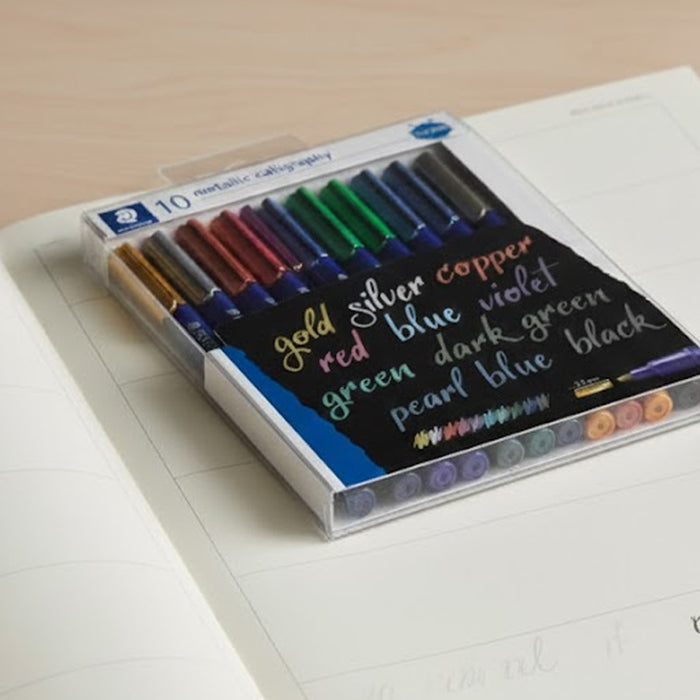 10 metallic calligraphy
STAEDTLER
gold silver copper
red blue violet
green dark green
pearl blue black